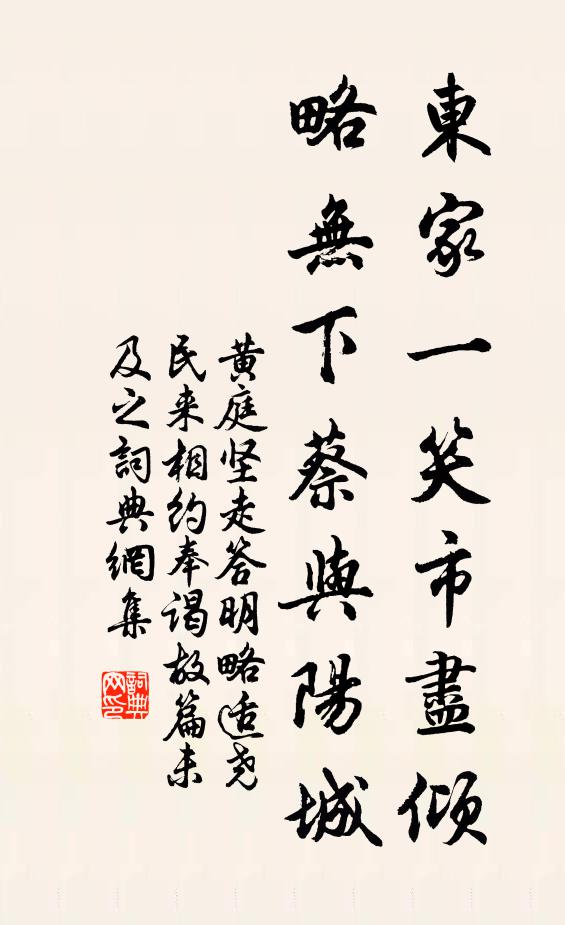 東家一笑市盡傾
略無下蔡與陽城
黄庭坚走答明略适尧
民来相约奉谒故篇末
及之詞典網集
詞典
网印